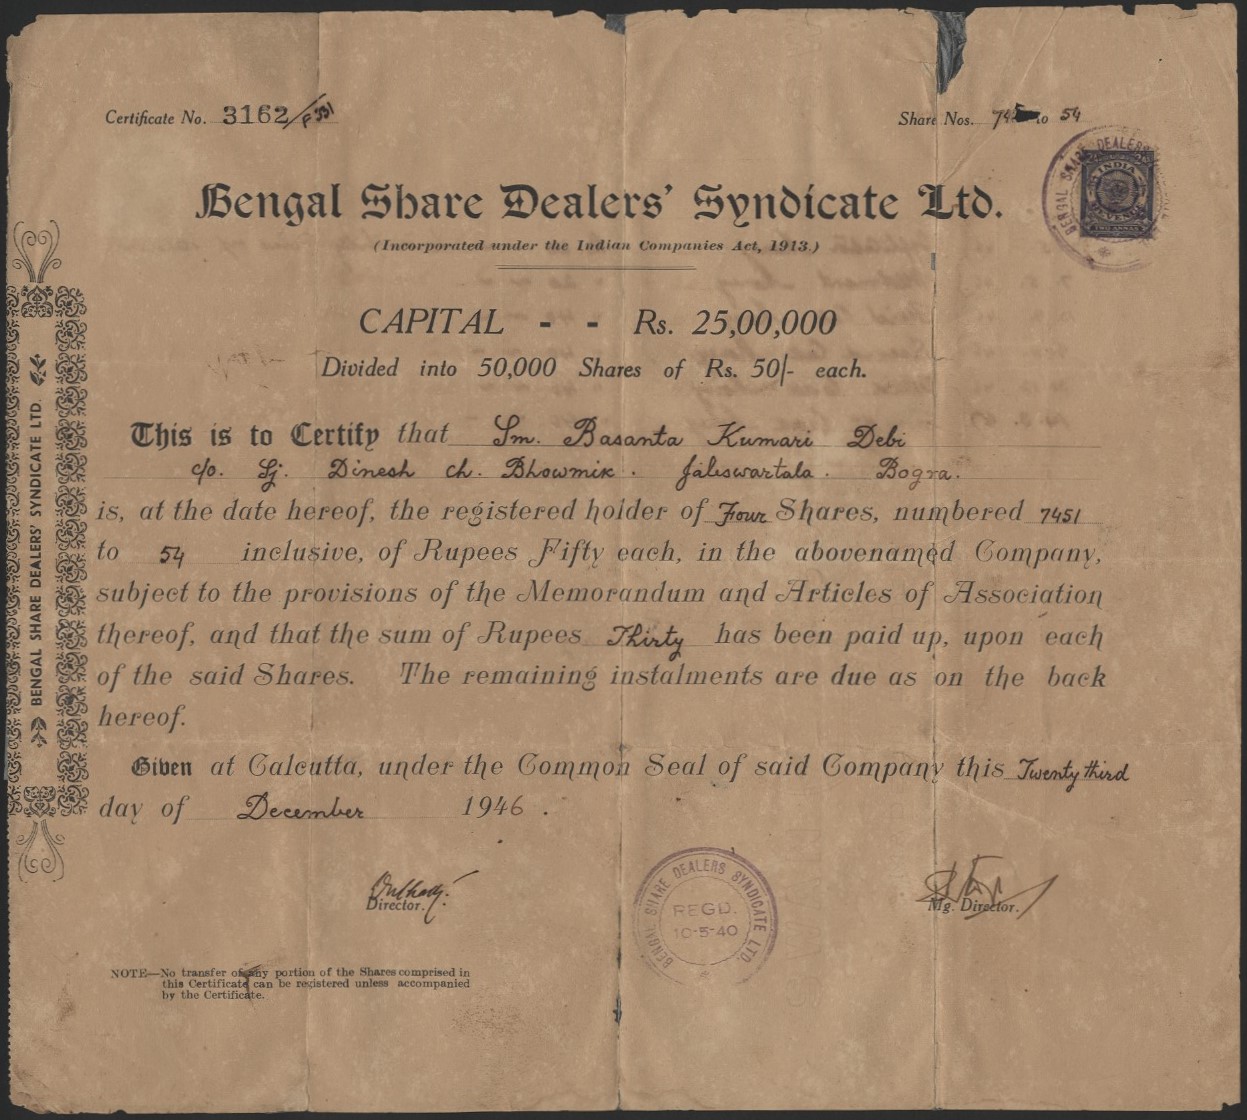 Certificate No. 3162/P 331
Share Nos. 745 to 54
BENGAL SHARE DEALERS
INDIA
REVENUE
TWO ANNAS
Bengal Share Dealers' Syndicate Ltd.
(Incorporated under the Indian Companies Act, 1913.)
CAPITAL - - Rs. 25,00,000
Divided into 50,000 Shares of Rs. 50/- each.
This is to Certify that Sm. Basanta Kumari Debi
c/o. Sj. Dinesh ch. Bhowmik. Jaleswartala. Bogra.
is, at the date hereof, the registered holder of Four Shares, numbered 7451
to 54 inclusive, of Rupees Fifty each, in the abovenamed Company,
subject to the provisions of the Memorandum and Articles of Association
thereof, and that the sum of Rupees Thirty has been paid up, upon each
of the said Shares. The remaining instalments are due as on the back
hereof.
Given at Calcutta, under the Common Seal of said Company this Twenty third
day of December 1946.
Director.
BENGAL SHARE DEALERS SYNDICATE LTD.
REGD.
10-5-40
Mg. Director.
NOTE—No transfer of any portion of the Shares comprised in
this Certificate can be registered unless accompanied
by the Certificate.
BENGAL SHARE DEALERS' SYNDICATE LTD.